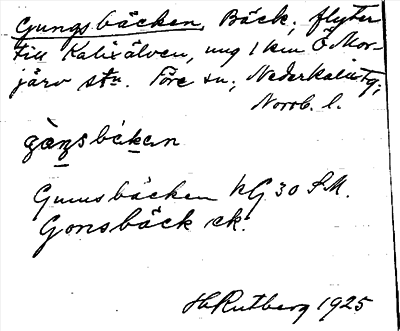 Gungsbäcken, Bäck; flyter
till Kalixälven, ung 1 km Ö Mor-
järv stn. Före sn; Nederkalix tg;
Norrb. l.
gàŋsbäken
Gunusbäcken hG 30 S.M.
Gonsbäck ek.
HRutberg 1925